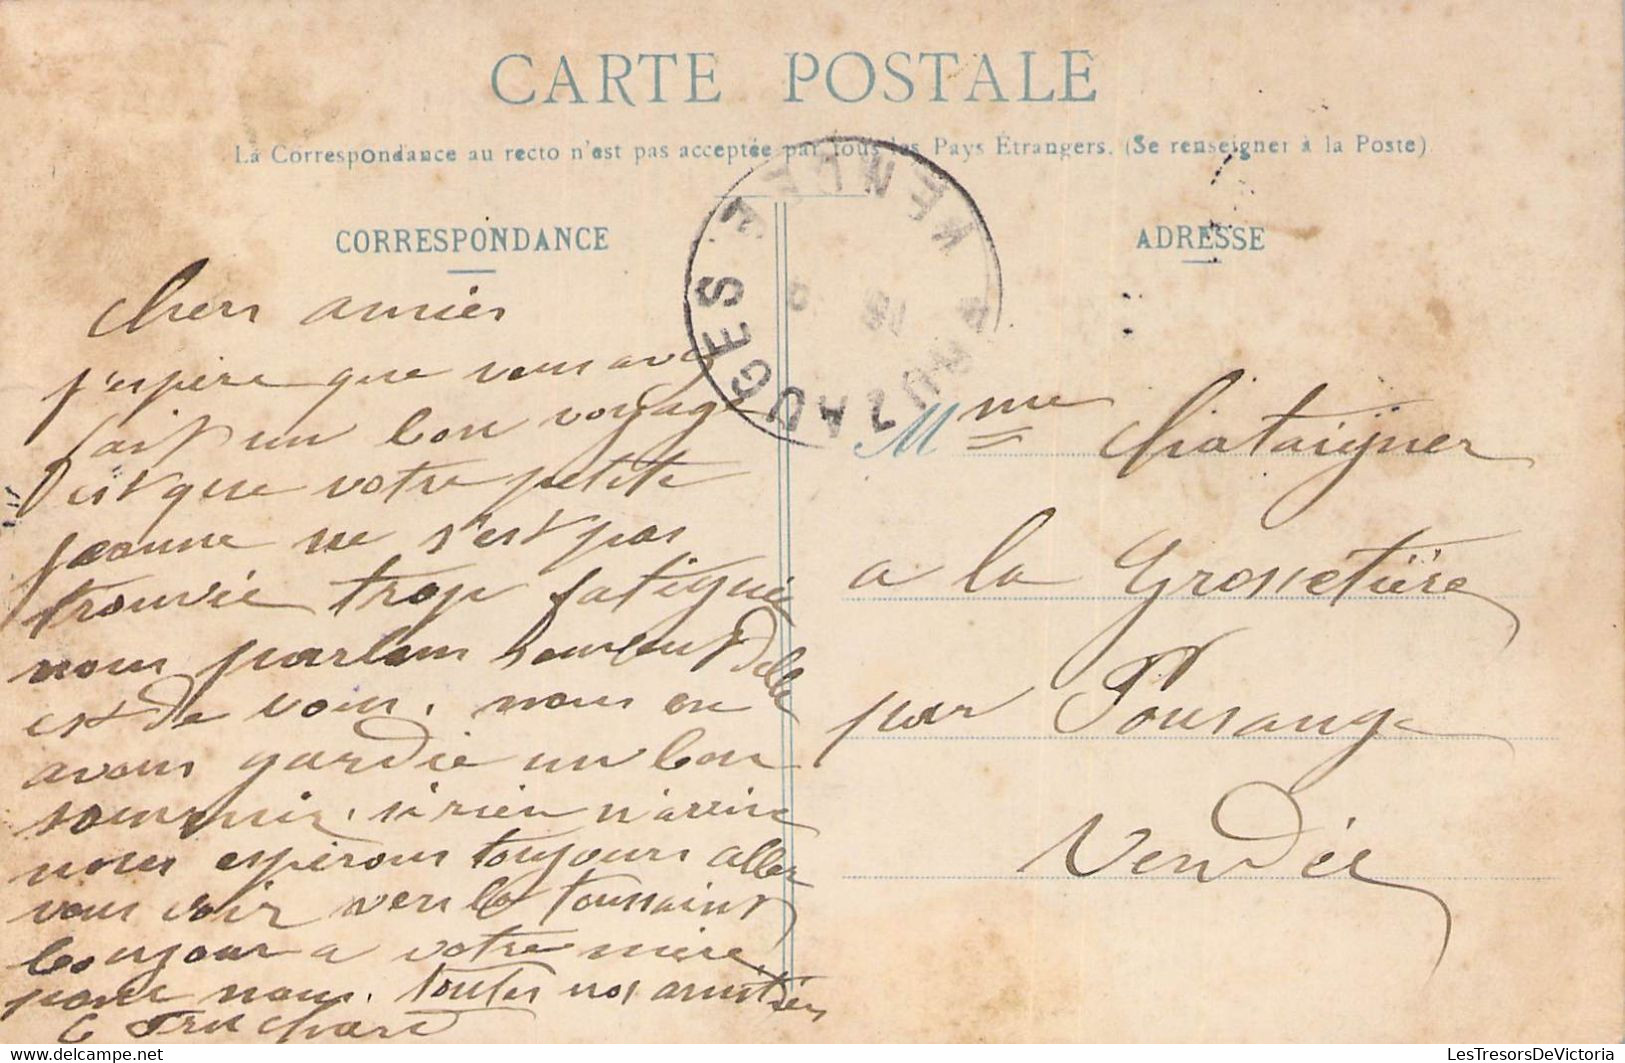 CARTE POSTALE
La Correspondance au recto n'est pas acceptée par tous les Pays Étrangers. (Se renseigner à la Poste)
CORRESPONDANCE
ADRESSE
chers amies
j'espère que vous avez
fait un bon voyage
est que votre petite
jeanne ne s'est pas
trouvée trop fatiguée
nous parlons souvent d'elle
est de vous. nous en
avons gardée un bon
souvenir. si rien n'arrive
nous espérons toujours aller
vous voir vers la toussaint
bonjour a votre mère
pour nous. toutes nos amitiés
Mme Chataigner
a la Grossetière
par Pousauge
Vendée
LesTresorsDeVictoria